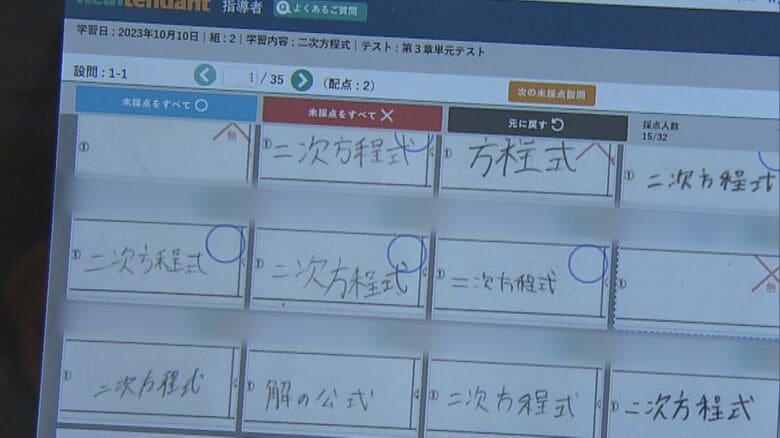 Realtendant 指導者 Q よくあるご質問
学習日:2023年10月10日|組:2|学習内容:二次方程式|テスト:第3章単元テスト
設問:1-1 1 /35 (配点:2) 次の未採点設問
未採点をすべて○ 未採点をすべて× 元に戻す 採点人数
15/32
① 無 ①二次方程式 ①方程式 ①二次方程式
①二次方程式 ①二次方程式 ①二次方程式 ① 無
①二次方程式 ①解の公式 ①二次方程式 ①二次方程式